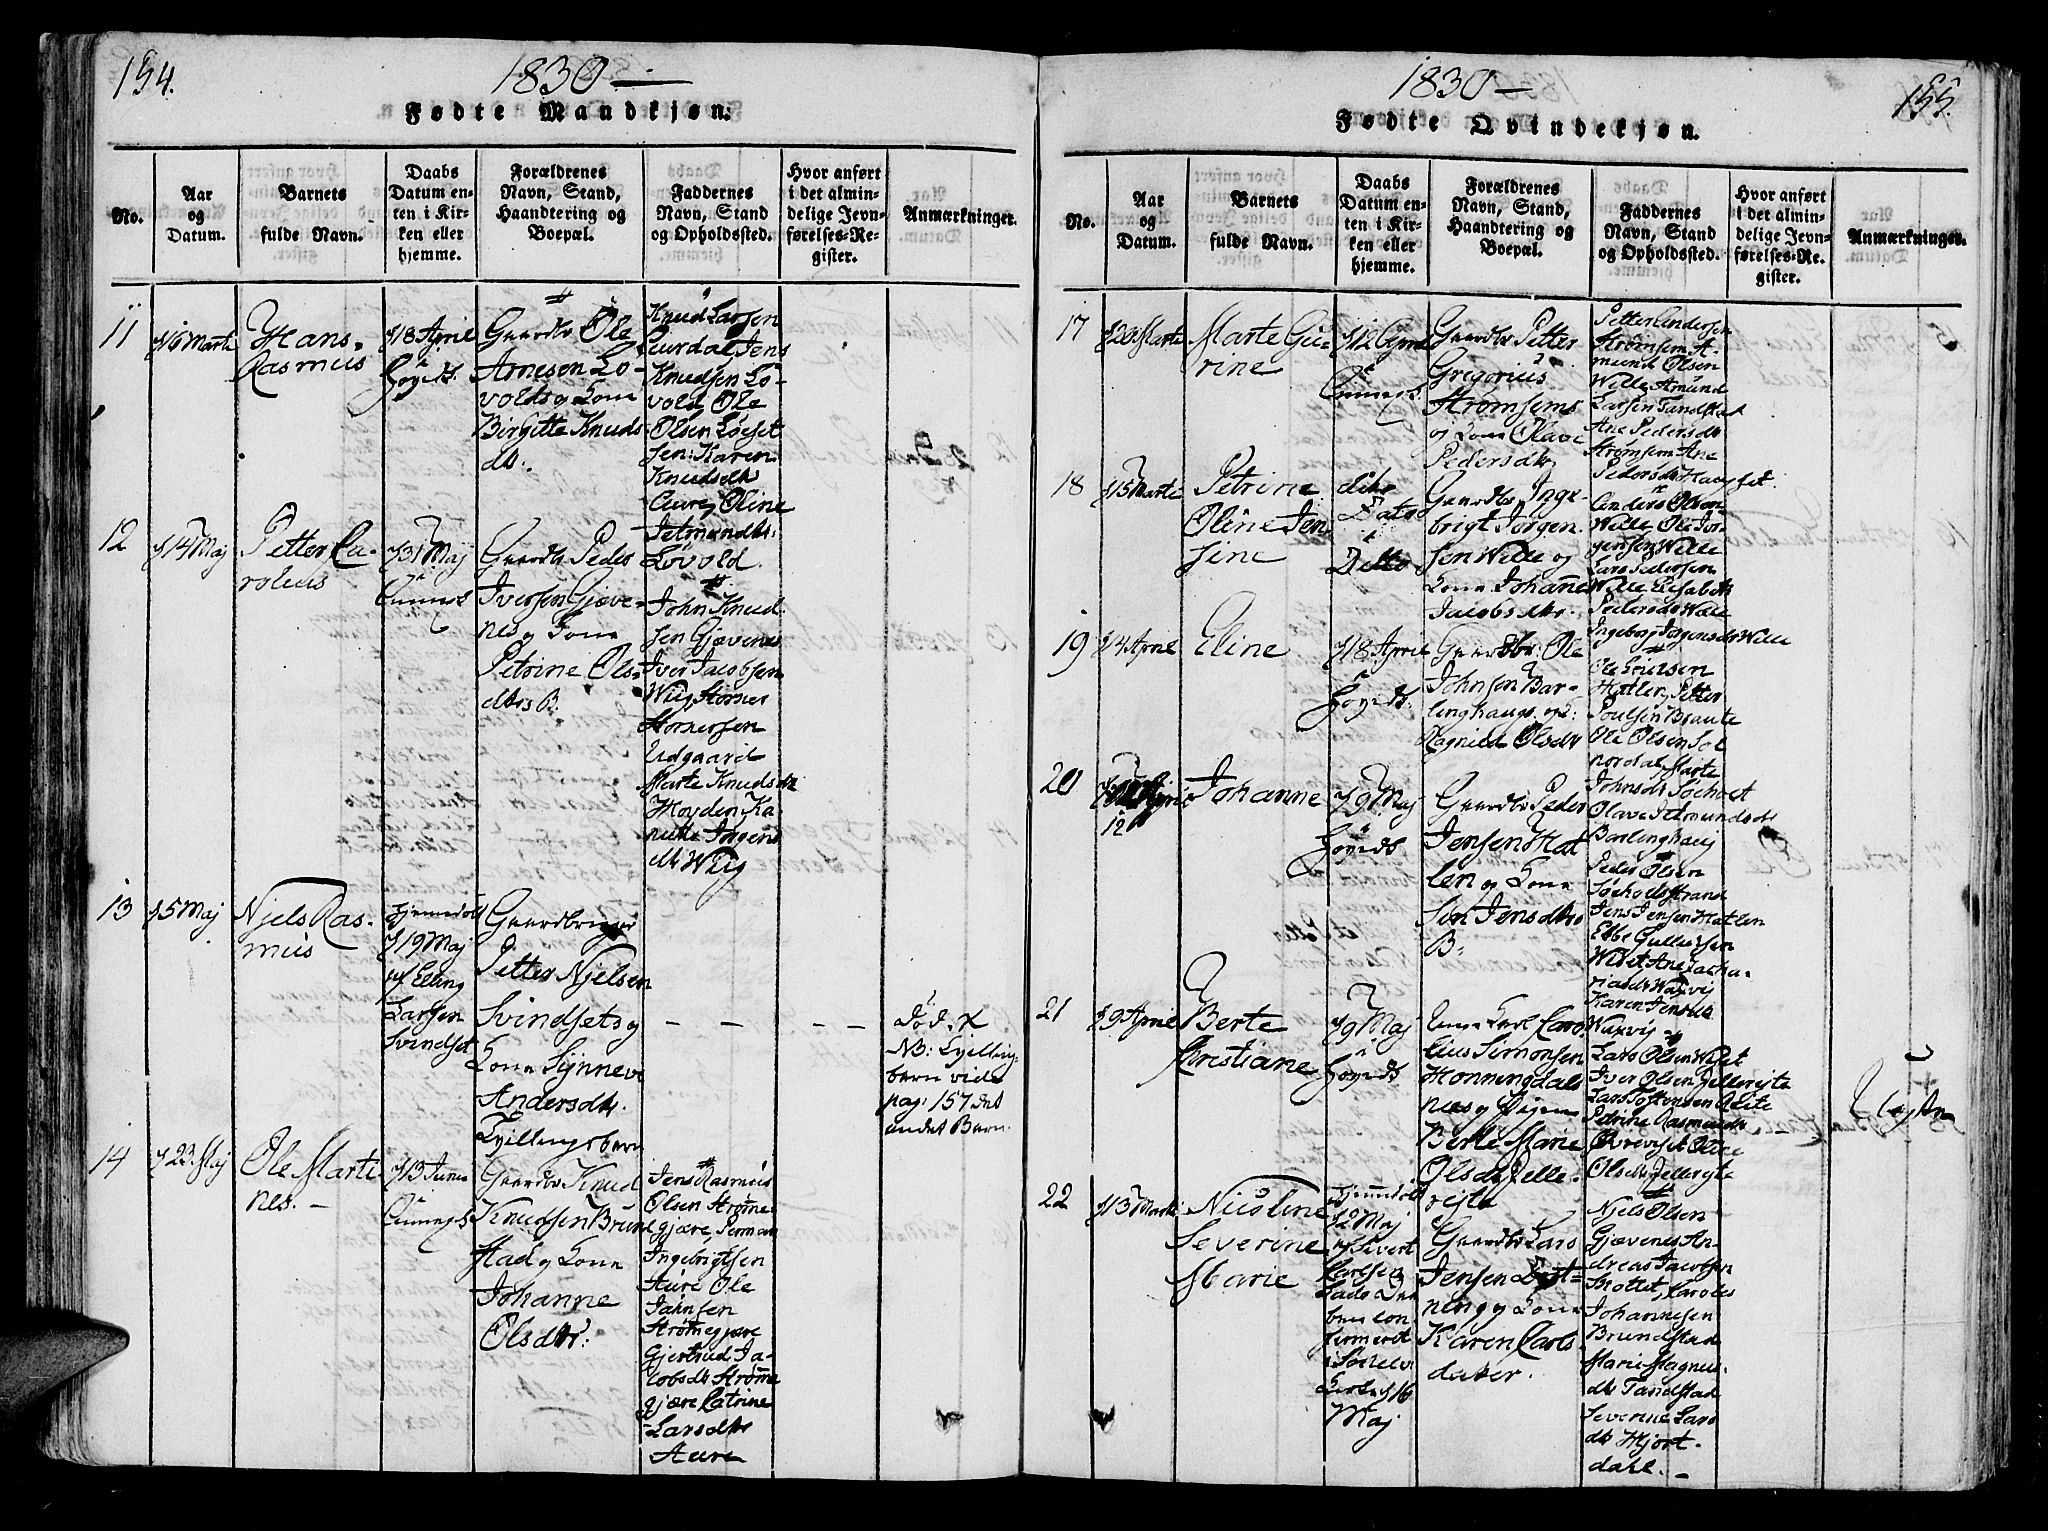 154.
1830 —
Fødte Mandkjøn.
No.
Aar
og
Datum.
Barnets
fulde Navn.
Daabs
Datum en-
ten i Kir-
ken eller
hjemme.
Forældrenes
Navn, Stand,
Haandtering og
Boepæl.
Faddernes
Navn, Stand
og Opholdssted.
Hvor anført
i det almin-
delige Jevn-
førelses-Re-
gister.
Anmærkninger.
11
16 Marts
Hans
Rasmus
18 April
Gaardbr Ole
Arnesen Lö-
vold og Kone
Birgitte Knuds
dtr.
Knud Larsen
Aurdal Jens
Knudsen Lö-
vold Ole
Olsen Löeset
Jen: Karen
Knudsdtr
Aure, Oline
Jetmundtr:
Lövold.
12
14 Maj
Petter Ca-
rolus
31 Maj
Gaardbr Peder
Iversen Gjæve-
nes og Kone
Petrine Ols-
dtr B.
John Knud-
sen Gjævenes
Iver Jacobsen
Wiig Stömer
Stömersen
Udgaard
Marte Knudsdtr
Høyden Ka-
nutte Jørgens
dtr Wiig
13
15 Maj
Njels Ras-
mus
Hjemedöbt
19 Maj
af Elling
Larsen
Svindset
Gaardbruger
Petter Njelsen
Svindset og
Kone Synneve
Andersdtr.
Tvillingsbörn
— — — —
Död. X
NB: Tvilling-
børn vide
pag: 157 det
andet Barn.
14
23 Maj
Ole Marti
nes. —
13 Junii
Gaardbr Knud
Knudsen Brund
stad og Kone
Johanne
Olsdtr:
Jens Rasmus
Olsen Strømme-
gjære, Perman
Ingebrigtsen
Aure Ole
Jahnsen
Strømegjære
Gjertrud Ja-
cobsdtr Strømme
gjære Catrine
Larsdtr
Aure
155.
1830 —
Fødte Qvindekjøn.
No.
Aar
og
Datum.
Barnets
fulde Navn.
Daabs
Datum en-
ten i Kir-
ken eller
hjemme.
Forældrenes
Navn, Stand,
Haandtering og
Boepæl.
Faddernes
Navn, Stand
og Opholdssted.
Hvor anført
i det almin-
delige Jevn-
førelses-Re-
gister.
Anmærkninger.
17
20 Marts
Marte Gu-
rine
12 April
Gaardbr Petter
Gregorius
Strømsem
og Kone Olave
Pedersdtr
Petter Andersen
Strømsem A-
mund Olsen
Wille Amund
Larsen Tandstad
Ane Pedersdtr
Strømsem Ane
Pedersdtr Haugset.
18
15 Marts
Petrine
Oline Jen
sine
dito
Dato
i
Ditto
Gaardbr Inge-
brigt Jørgen-
sen Wille og
Kone Johanne
Jacobsdtr.
Anders Olsen
Wille Ole Jör-
gensen Wille
Lars Pedersen
Wille Elisabeth
Pedersdtr Wille
Ingeborg Jørgensdtr Wille
19
4 April
Eline
18 April
Gaardbr: Ole
Johnsen Bar-
linghaug og
Ragnild Olsdtr
Hatlen, Petter
Poulsen Braute
Ole Olsen Sol
nordal, Marte
Johnsdtr Søeholt
Olave Amundsdtr
Barlinghaug
20
April
12
Johanne
9 Maj
Gaardbr Peder
Jensen Hat
len og Kone
Siri Jensdtr
B:
Peder Olsen
Søeholsstrand
Jens Jensen Hatlen
Ebbe Gullacsen
Widet Ane Zacha-
riasdtr Waxvig
Karen Jensdtr
Waxvig
21
9 April
Berte
Kristiane
9 Maj
Caro
lius Simonsen
Honningdals
nes og Pigen
Berte Marie
Olsdtr Jelle-
rejte
Lars Olsen Widet
Iver Olsen Jellerejte
Lars Tostensen Rejte
Petrine Rasmusdtr
Olsdtr Jellerejte
22
13 Marts
Nicoline
Severine
Marie
Hjemmedöbt
2 Maj
af Sivert
Carlsen
con
firmeret
i Søeholv
Kirke d 16
Maj.
Gaardbr Lars
Jensen Løst-
ning og Kone
Karen Carls
datter.
Njels Olsen
Gjævenes An-
dreas Jacobsen
Stottet, Karoles
Johannesen
Brundstad
Marie Magnus
dtr Tandstad
Severine Lars
dtr Hjort-
dahl. —